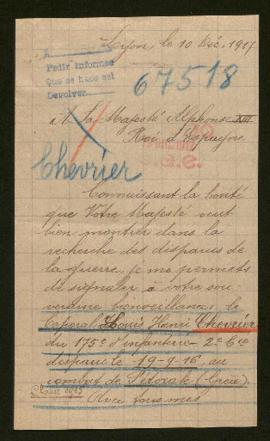 Lyon, le 10 Déc. 1917
Pedir informes
Que se hace así
Devolver
67518
A Sa Majesté Alphonse XIII
Roi d'Espagne
Chevrier
Connaissant la bonté
que Votre Majesté veut
bien montrer dans la
recherche des disparus de
la guerre, je me permets
de signaler à votre sou-
veraine bienveillance, le
Caporal Louis Henri Chevrier
du 175e d'infanterie - 2e Cie
disparu le 19-9-16 au
combat de Pétorak (Grèce).
Avec tous mes